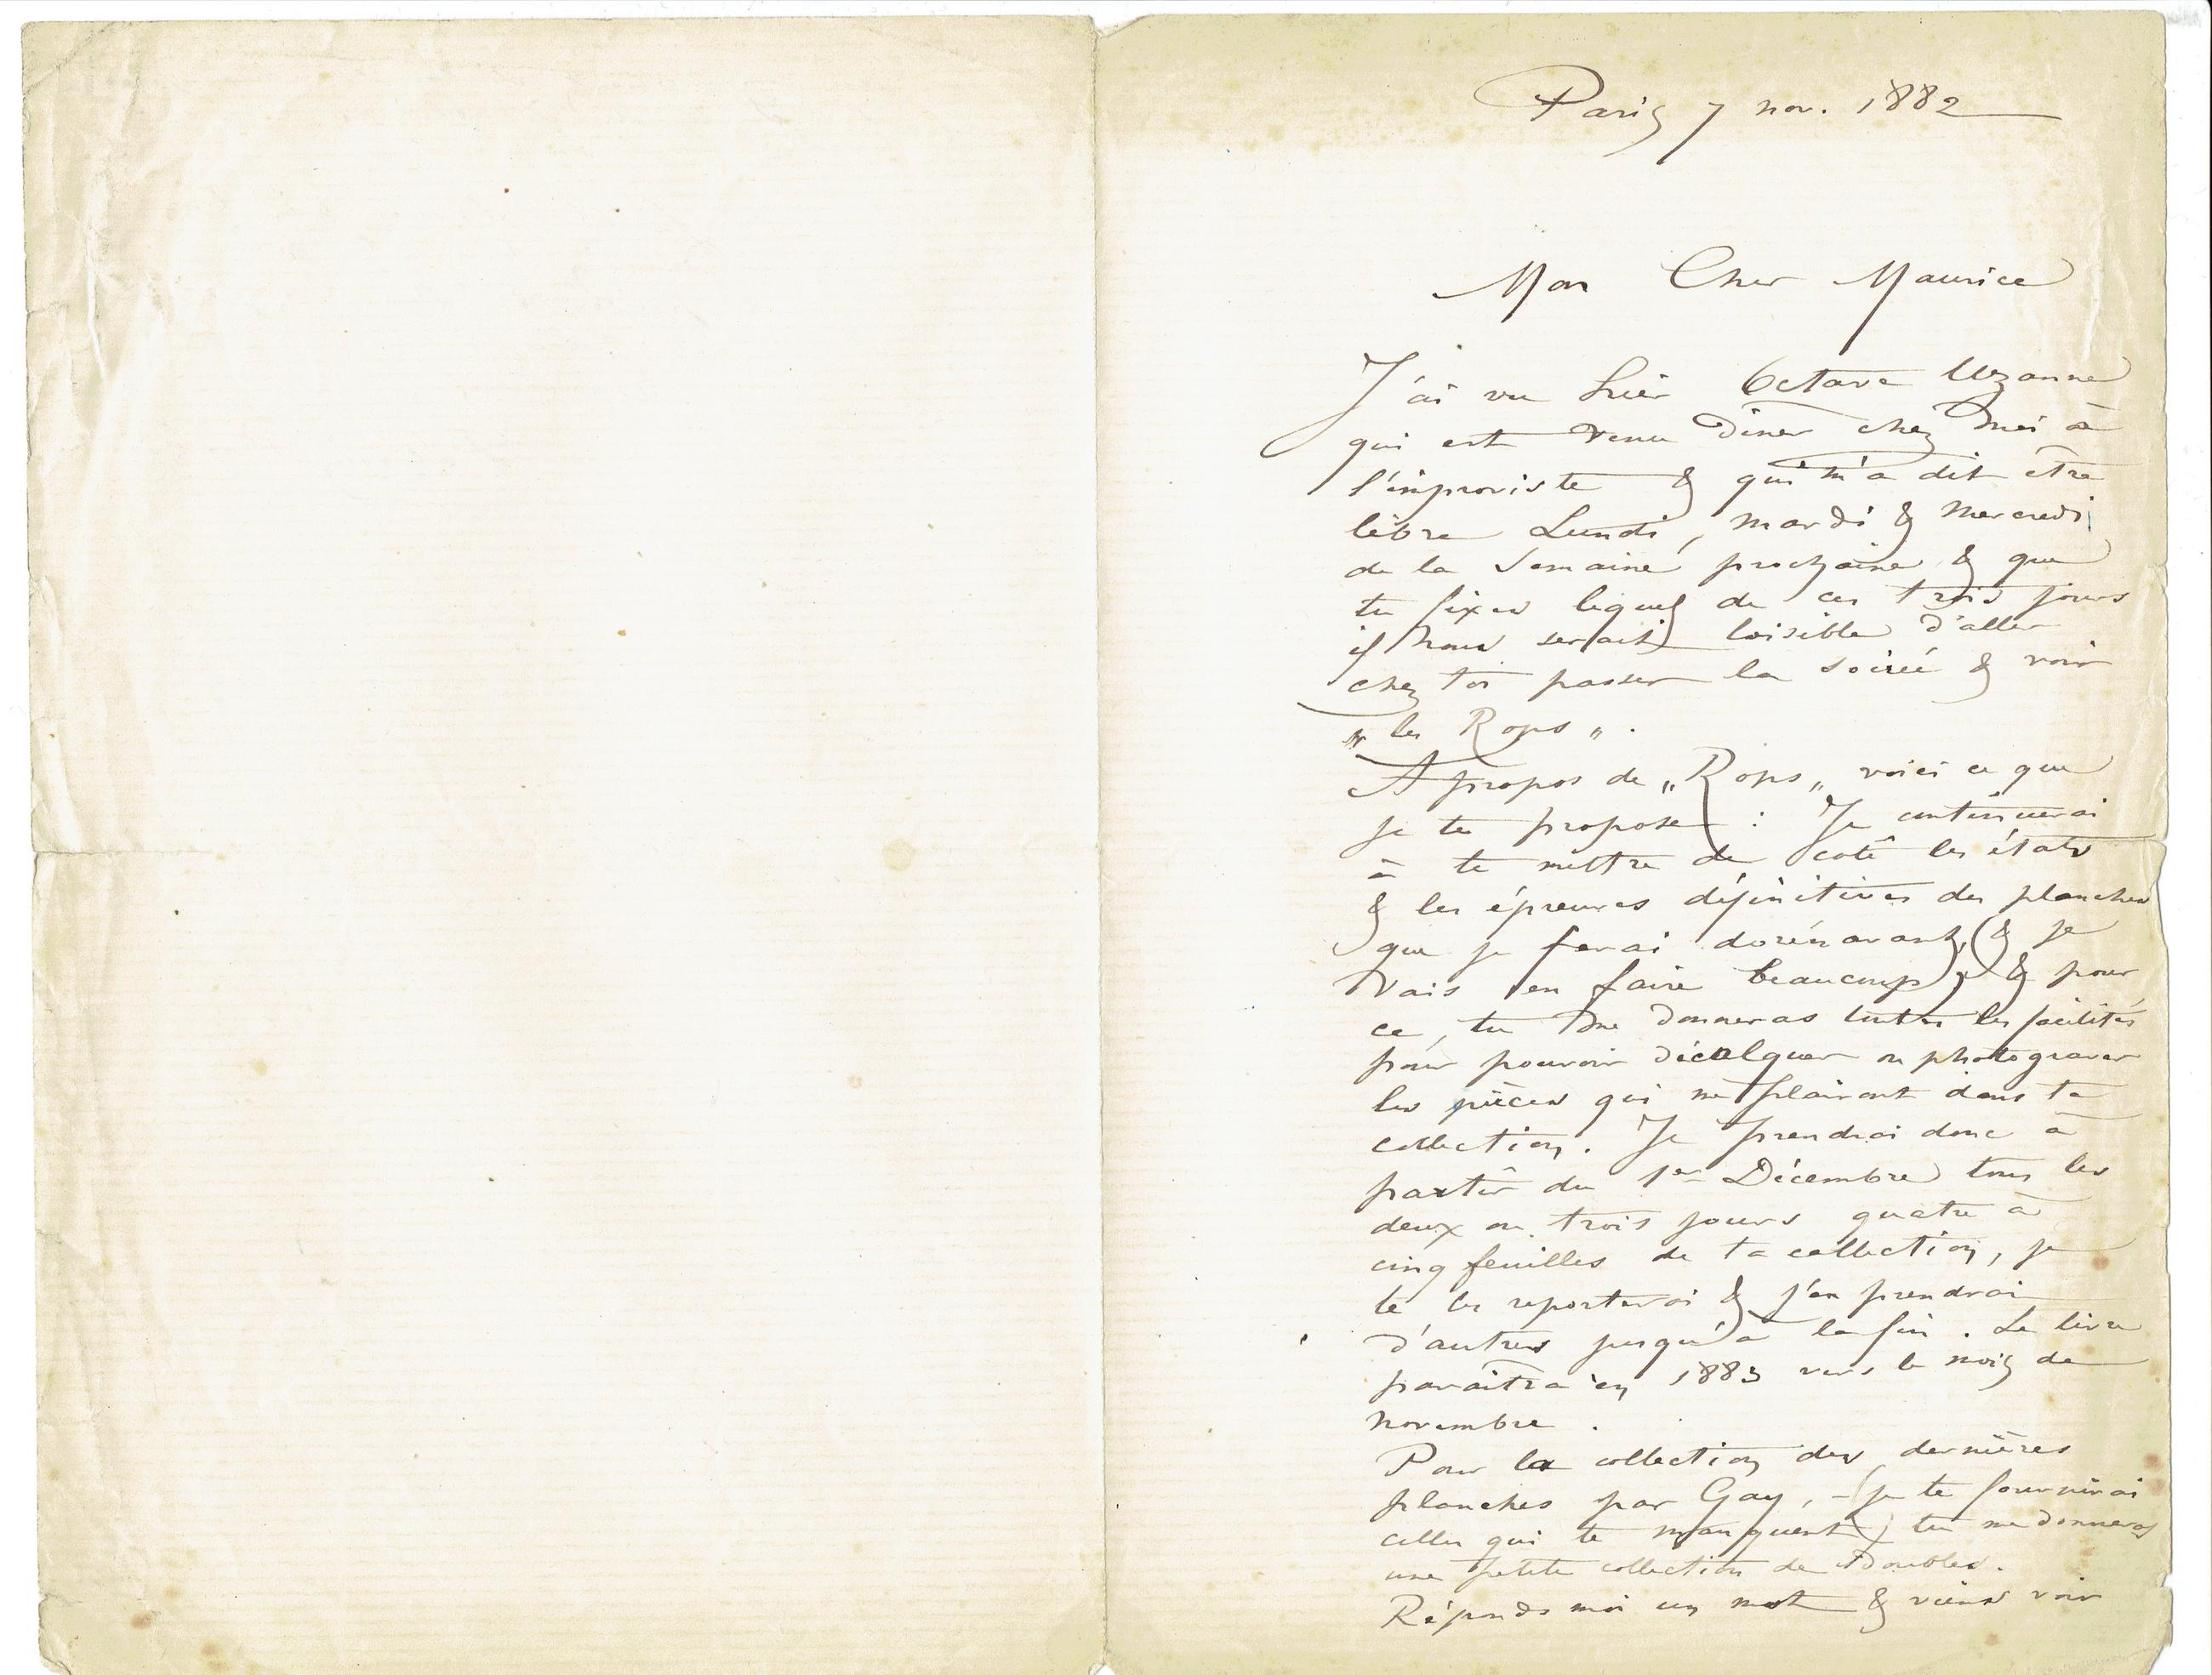 Paris 7 nov. 1882
Mon Cher Maurice
J'ai vu hier Octave Uzanne
qui est venu diner chez moi à
l'improviste & qui m'a dit être
libre Lundi, mardi & mercredi
de la semaine prochaine & que
tu fixes lequel de ces trois jours
il nous serait loisible d'aller
chez toi passer la soirée & voir
„ les Rops „ .
A propos de „ Rops „ voici ce que
je te propose : Je continuerai
à te mettre de coté les états
& les épreuves définitives des planches
que je ferai dorénavant, (& je
vais en faire beaucoup), & pour
ce, tu me donneras toutes les facilités
pour pouvoir décalquer ou photograver
les pièces qui me plairont dans ta
collection. Je prendrai donc à
partir du 1er Décembre tous les
deux ou trois jours quatre à
cinq feuilles de ta collection, je
te les reporterai & j'en prendrai
d'autres jusqu'à la fin . Le livre
paraîtra en 1883 vers le mois de
novembre .
Pour la collection des dernières
planches par Gay, – (je te fournirai
celles qui te manquent) tu me donneras
une petite collection de doubles.
Réponds moi un mot & viens voir